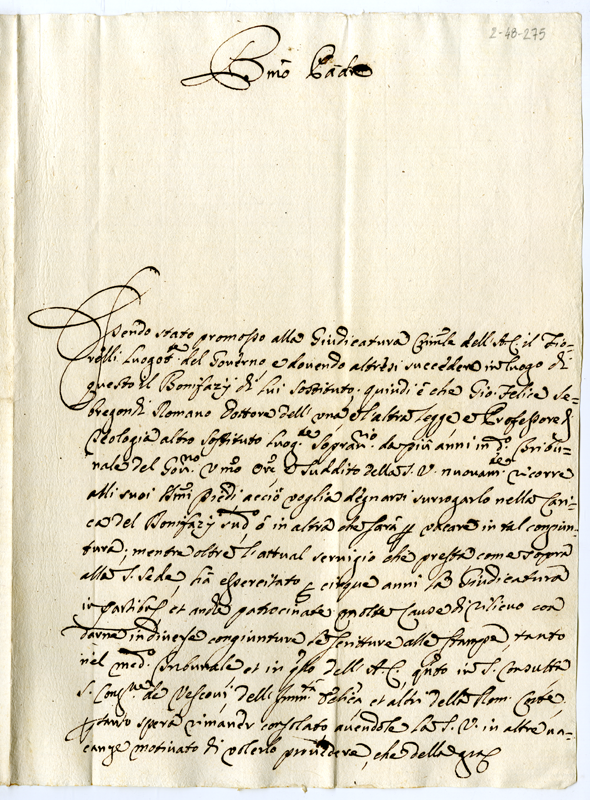 2-48-275
Bmo Padre
Essendo stato promosso alla Giudicatura Crimle dell'A.C. il Fio-
relli Luogote del Governo, e dovendo altresi succedere in luogo di
questo il Bonifazÿ di Lui sostituto, quindi è che Gio: Felice Se-
bregondi Romano Dottore dell'una, e l'altra Legge e Professore di
Teologia altro sostituto Luogte sopranrio da più anni in do Tribu-
nale del Govno Vmo Ore e Suddito della S. V. nuovamte ricorre
alli suoi Smi Piedi acciò voglia degnarsi surrogarlo nella Cari-
ca del Bonifazÿ sudo, ò in altra che sarà p vacare in tal congiun-
tura; mentre oltre l'attual servigio che presta come sopra
alla S. Sede, hà essercitato p cinque anni la Giudicatura
in partibus et anche patrocinate molte Cause di rilievo con
darne in diverse congiunture le scritture alle stampe, tanto
nel medo Tribunale et in qllo dell'A.C., qnto in S. Consulta
S. Congne de Vescovi, dell' et altri della Rom: Corte,
ptanto spera rimaner consolato avendole la S. V. in altre va-
canze motivato di volerlo provedere, che della graz